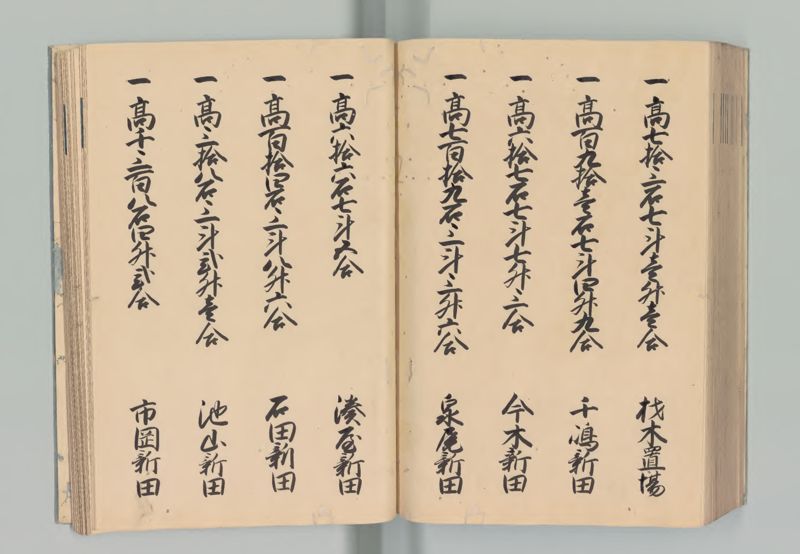 一 高七拾三石七斗壱升壱合 材木置場
一 高百九拾壱石七斗四升九合 千嶋新田
一 高六拾七石七斗七升三合 今木新田
一 高七百拾九石三斗三升六合 泉尾新田
一 高六拾六石七斗六合 湊屋新田
一 高百拾四石三斗八升六合 石田新田
一 高三拾八石三斗弐升壱合 池山新田
一 高千三百八石四升弐合 市岡新田